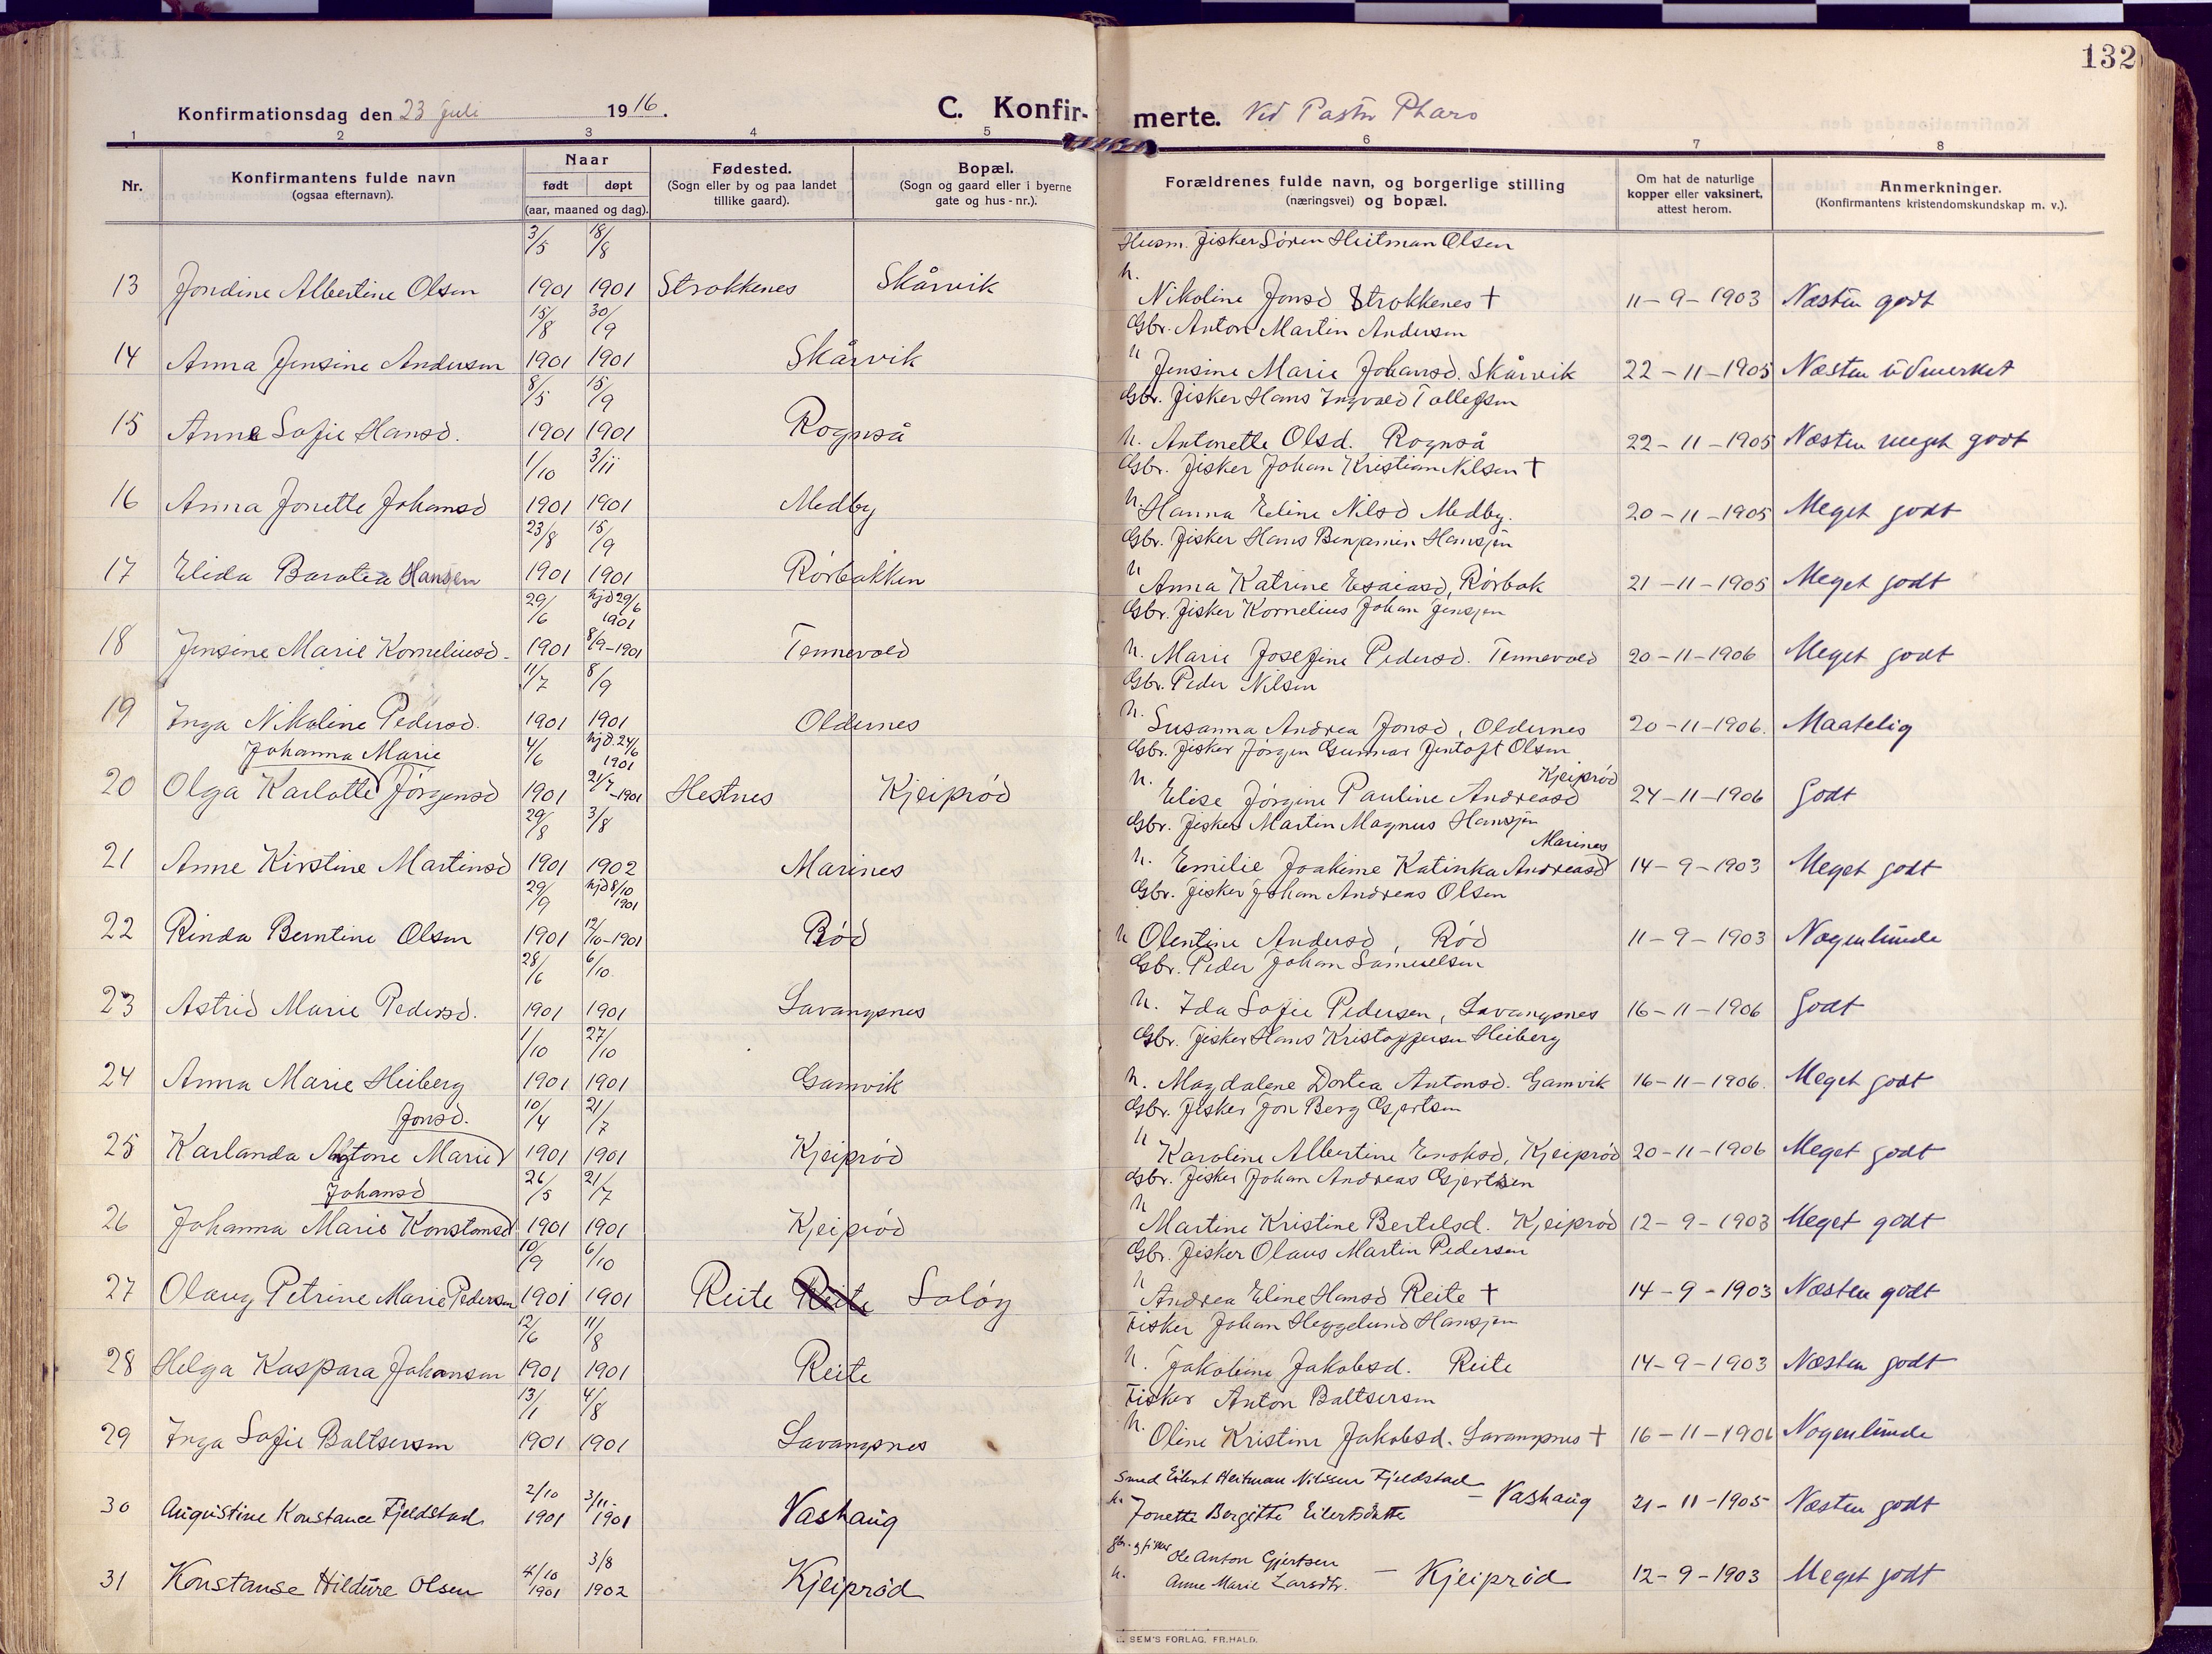 132
Konfirmationsdag den 23 Juli 1916.
C. Konfirmerte. Ved Pastor Pharo
1 2 3 4 5 6 7 8
Nr.
Konfirmantens fulde navn
(ogsaa efternavn).
Naar
født døpt
(aar, maaned og dag).
Fødested.
(Sogn eller by og paa landet
tillike gaard).
Bopæl.
(Sogn og gaard eller i byerne
gate og hus-nr.).
Forældrenes fulde navn, og borgerlige stilling
(næringsvei) og bopæl.
Om hat de naturlige
kopper eller vaksinert,
attest herom.
Anmerkninger.
(Konfirmantens kristendomskundskap m. v.).
3/5 18/8 Husm. fisker Søren Heitman Olsen
13 Jondine Albertine Olsen 1901 1901 Strokkenes Skårvik h. Nikoline Jonsd Strokkenes † 11-9-1903 Næsten godt
15/8 30/9 Gbr. Anton Martin Andersen
14 Anna Jensine Andersen 1901 1901 Skårvik h Jensine Marie Johansd. Skårvik 22-11-1905 Næsten udmerket
8/5 15/9 Gbr. fisker Hans Ingvald Tollefsen
15 Anna Sofie Hansd. 1901 1901 Rognså h. Antonette Olsd. Rognså 22-11-1905 Næsten meget godt
1/10 3/11 Gbr. fisker Johan Kristian Nilsen †
16 Anna Jonette Johansd 1901 1901 Medby h. Hanna Eline Nilsd Medby. 20-11-1905 Meget godt
23/8 15/9 Gbr. fisker Hans Benjamin Hansen
17 Elida Barotea Hansen 1901 1901 Rørbakken h Anna Katrine Esaiasd, Rørbak 21-11-1905 Meget godt
29/6 hjd 29/6 1901 Gbr. fisker Kornelius Johan Jensen
18 Jensine Marie Korneliusd. 1901 8/9-1901 Tennevold h. Marie Josefine Pedersd. Tennevold 20-11-1906 Meget godt
11/7 8/9 Gbr. Peder Nilsen
19 Inga Nikoline Pedersd. 1901 1901 Oldernes h. Susanna Andrea Jonsd, Oldernes 20-11-1906. Maatelig
Johanna Marie 4/6 hjd. 24/6 1901 Gbr. fisker Jørgen Gunnar Jentoft Olsen
20 Olga Karlotte Jørgensd 1901 21/7-1901 Hestnes Kjeiprød h. Elise Jørgine Pauline Andreasd Kjeiprød 24-11-1906 Godt
29/8 3/8 Gbr. fisker Martin Magnus Hansen
21 Anne Kirstine Martinsd 1901 1902 Marines h. Emilie Joakime Katinka Andreasd Marines 14-9-1903 Meget godt
29/9 hjd 8/10 1901 Gbr. fisker Johan Andreas Olsen
22 Rinda Berntine Olsen 1901 12/10-1901 Rød h Olentine Andersd, Rød 11-9-1903 Nogenlunde
28/6 6/10. Gbr. Peder Johan Samuelsen
23 Astrid Marie Pedersd. 1901 1901 Lavangsnes h. Ida Sofie Pedersen, Lavangsnes 16-11-1906 Godt
1/10 27/10 Gbr. fisker Hans Kristoffersen Heiberg
24 Anna Marie Heiberg 1901 1901 Gamvik h. Magdalene Dortea Antonsd. Gamvik 16-11-1906. Meget godt
Jonsd. 10/4 21/7 Gbr. fisker Jon Berg Gjertsen
25 Karlanda Antone Marie 1901 1901 Kjeiprød h Karoline Albertine Enoksd, Kjeiprød 20-11-1906 Meget godt
Johansd 26/5 21/7 Gbr. fisker Johan Andreas Gjertsen
26 Johanna Marie Konstansd 1901 1901 Kjeiprød h Martine Kristine Bertelsd. Kjeiprød 12-9-1903 Meget godt
10/9 6/10 Gbr. fisker Olaus Martin Pedersen
27 Olaug Petrine Marie Pedersen 1901 1901 Reite Reite Saløy h Andrea Eline Hansd Reite † 14-9-1903 Næsten godt
12/6 11/8 Fisker Johan Heggelund Hansen
28 Helga Kaspara Johansen 1901 1901 Reite h. Jakobine Jakobsd. Reite 14-9-1903 Næsten godt
13/1 4/8 Fisker Anton Baltsersen
29 Inga Sofie Baltsersen 1901 1901 Lavangsnes h. Oline Kristine Jakobsd. Lavangsnes † 16-11-1906 Nogenlunde
2/10 3/11- Smed Eilert Heitman Nilssen Fjeldstad
30 Augustine Konstance Fjeldstad 1901 1901 Vashaug h. Jonette Bergitte Eilertsdatter - Vashaug 21-11-1905 Næsten godt
4/10 3/8 gbr. og fisker Ole Anton Gjertsen
31 Konstanse Hildure Olsen 1901 1902 Kjeiprød h. Anne Marie Larsdtr. - Kjeiprød 12-9-1903 Meget godt
SEM'S FORLAG. FR.HALD.